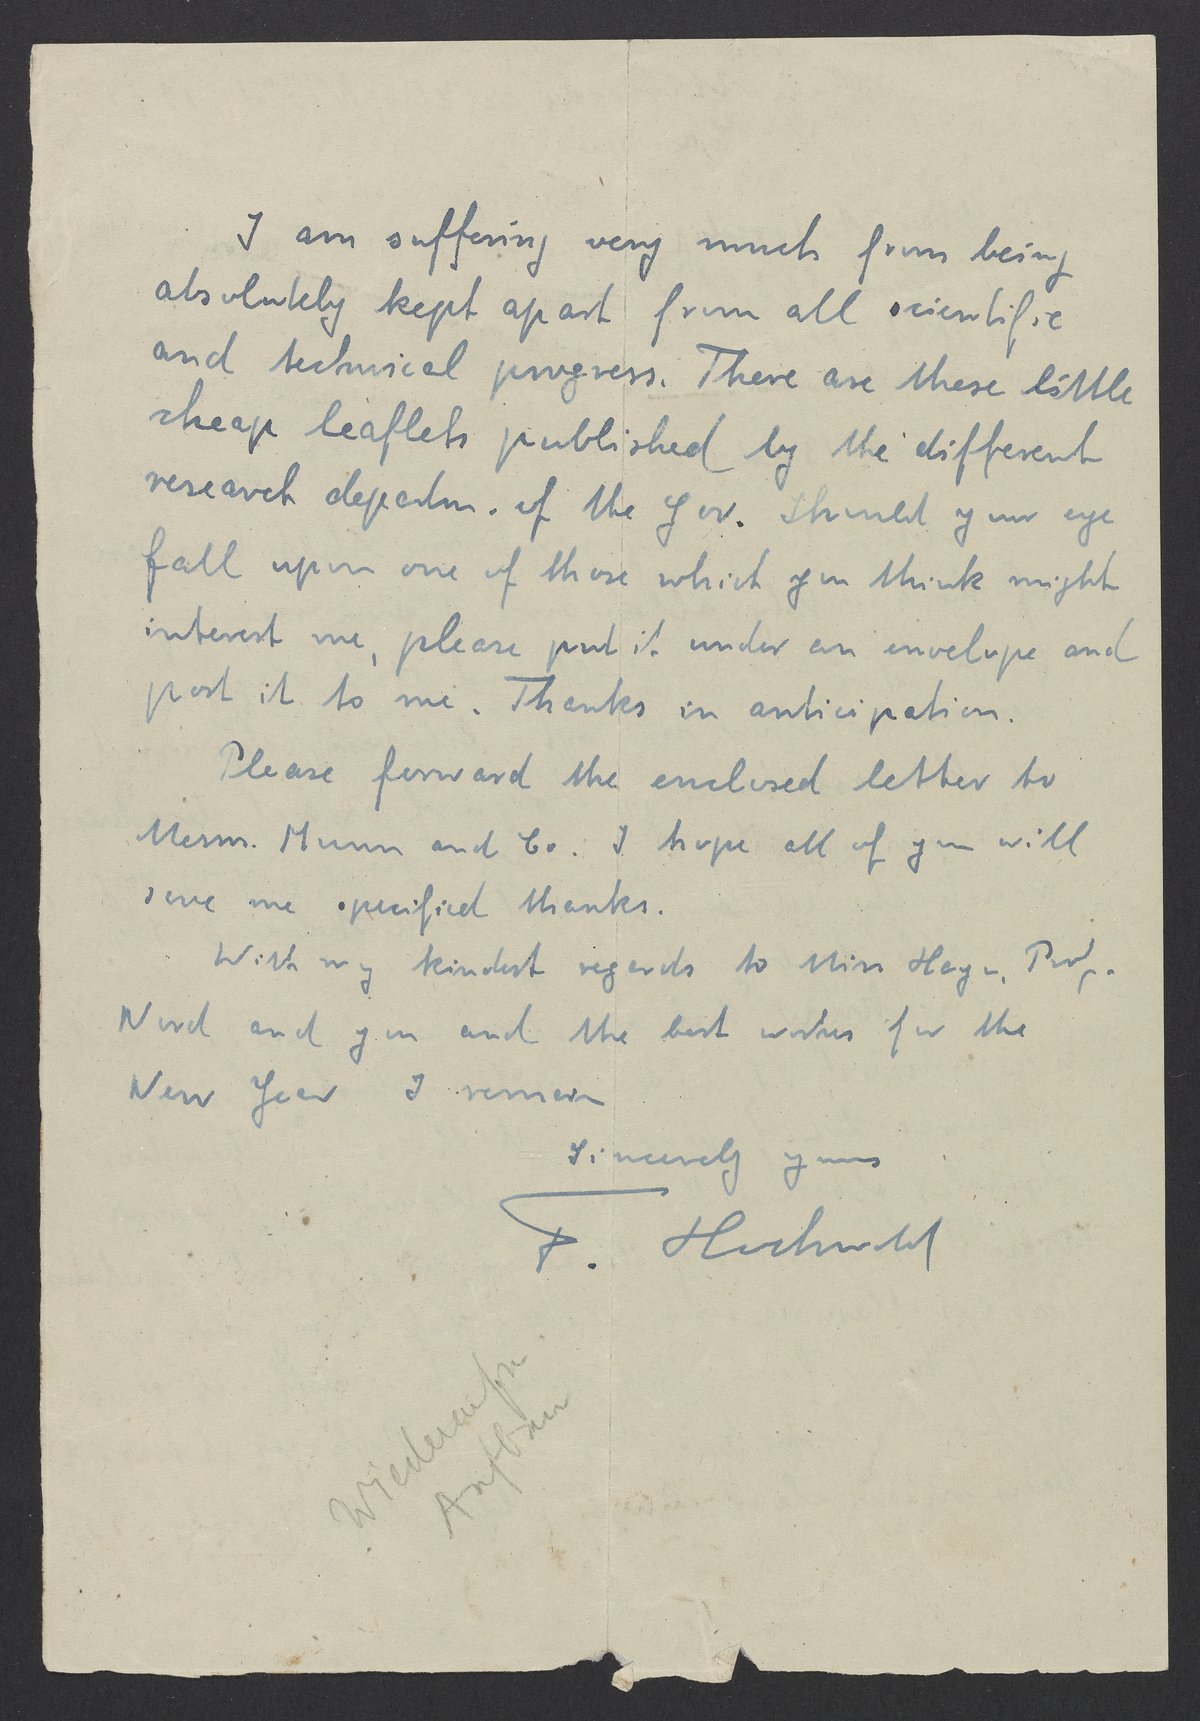 I am suffering very much from being
absolutely kept apart from all scientific
and technical progress. There are these little
cheap leaflets published by the different
research departm. of the Gov. Should your eye
fall upon one of those which you think might
interest me, please put it under an envelope and
post it to me. Thanks in anticipation.
Please forward the enclosed letter to
Messrs. Munn and Co. I hope all of you will
save me specified thanks.
With my kindest regards to Miss Prof.
Nord and you and the best wishes for the
New Year I remain
Sincerely yours
F. Hochwald
Aufbau